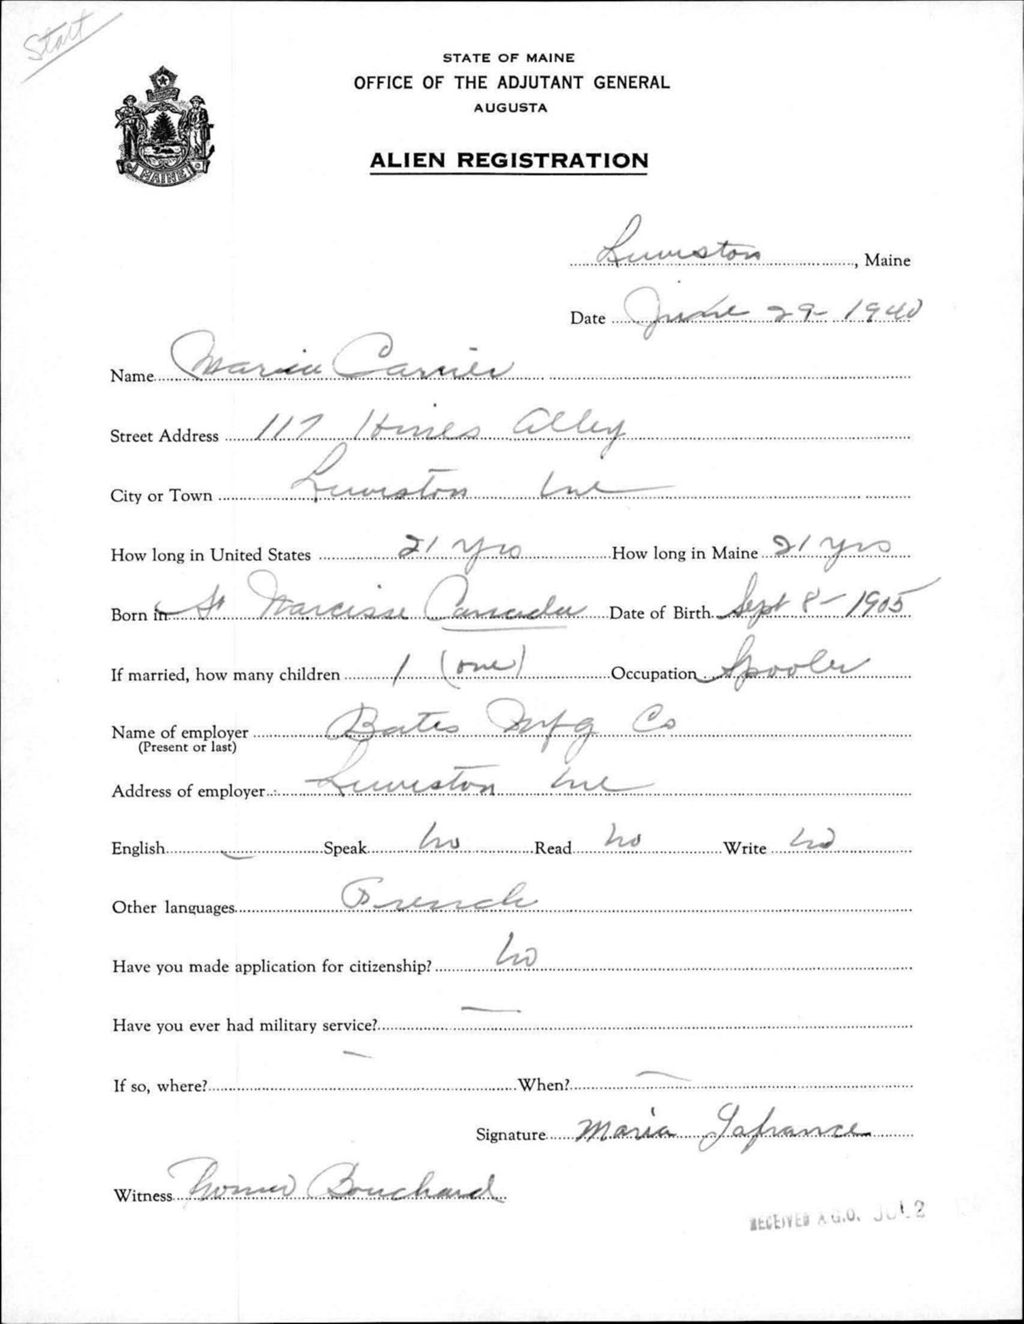 Start
STATE OF MAINE
OFFICE OF THE ADJUTANT GENERAL
AUGUSTA
ALIEN REGISTRATION
MAINE
Lewiston, Maine
Date June 29 - 1940
Name Maria Carrier
Street Address 117 Hines Alley
City or Town Lewiston Me
How long in United States 21 Yrs How long in Maine 21 yrs
Born in St Narcisse Canada Date of Birth Sept 8 - 1905
If married, how many children 1 (one) Occupation Spooler
Name of employer Bates Mfg Co
(Present or last)
Address of employer Lewiston Me
English Speak no Read no Write no
Other languages French
Have you made application for citizenship? no
Have you ever had military service? —
If so, where? — When? —
Signature Maria Lafrance
Witness Bouchard
RECEIVED A.G.O. JUL 2